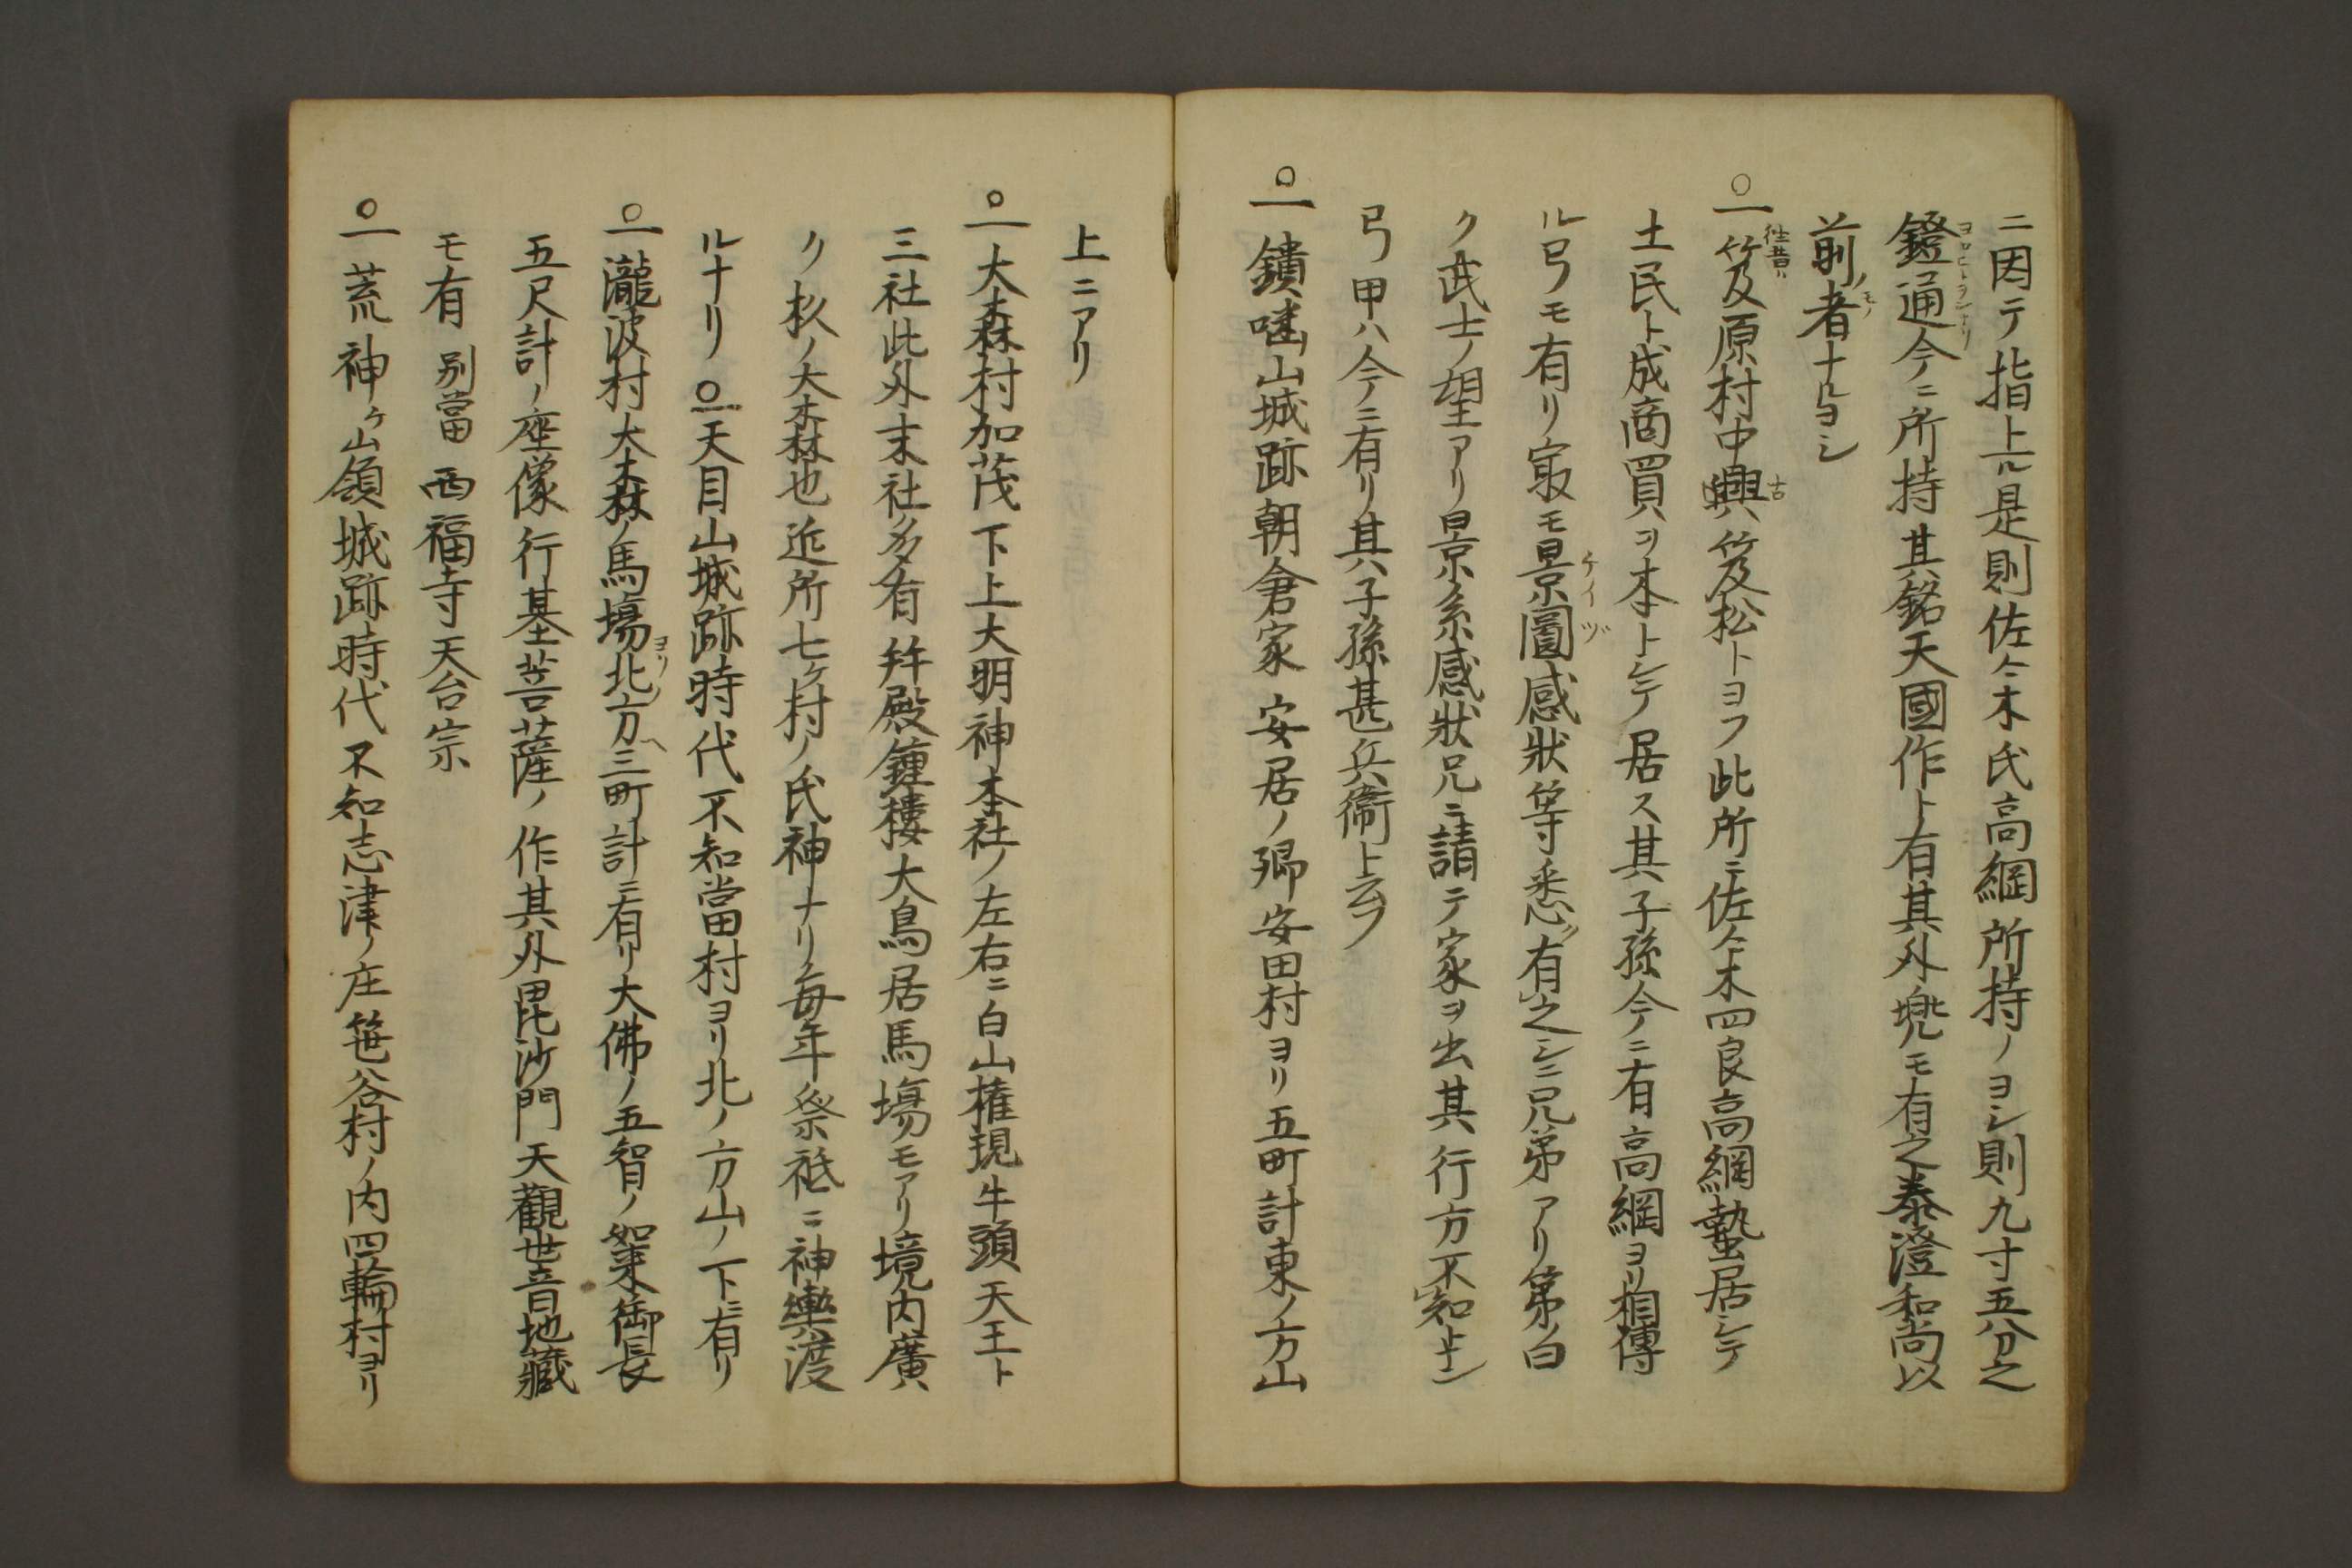 ニ因テ指上ル是則佐々木氏高綱所持ノヨシ則九寸五分之
鐙通今ニ所持其銘天國作ト有其外兜モ有之泰澄和尚以
前ノ者ナルヨシ
○一笈原村中興笈松トヨフ此所ニ佐々木四良高綱蟄居シテ
土民ト成商買ヲ本トシテ居ス其子孫今ニ有高綱ヨリ相傳
ル弓モ有リ冣モ景圖感狀等悉ク有之シニ兄弟アリ第白
ク武士ノ望アリ景系感狀兄ニ請テ家ヲ出其行方不知ヨシ
弓甲ハ今ニ有リ其子孫甚兵衞ト云フ
○一鑚𡋽山城跡朝倉家安居ノ郷安田村ヨリ五町計東ノ方山
上ニアリ
○一大森村加茂下上大明神本社ノ左右ニ白山権現牛頭天王ト
三社此外末社多有拜殿鐘樓大鳥居馬塲モアリ境内廣
ク杦ノ大森也近所七ケ村ノ氏神ナリ毎年祭祇ニ神輿渡
ルナリ ○一天目山城跡時代不知當村ヨリ北ノ方山ノ下ニ有リ
○一瀧波村大森ノ馬塲ヨリ北ノ方へ三町計ニ有リ大佛ノ五智ノ如来御長
五尺計ノ座像行基菩薩ノ作其外毘沙門天觀世音地藏
モ有 別當 西福寺天台宗
○一荒神ケ山嶺城跡時代不知志津ノ庄笹谷村ノ内四輪村ヨリ